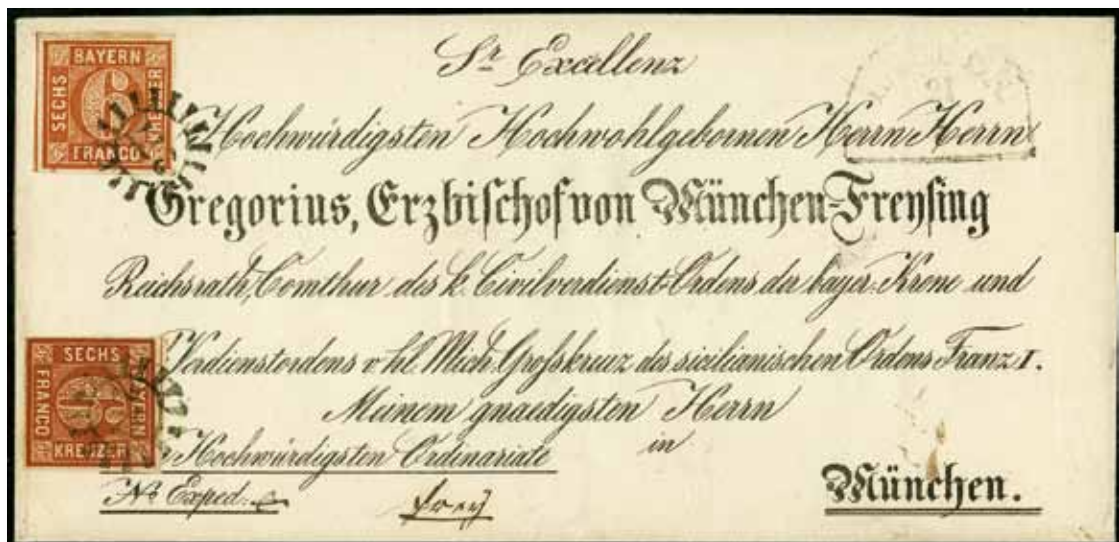 BAYERN
SECHS
KREUZER
FRANCO
6
Sr. Excellenz
Hochwürdigsten Hochwohlgebornen Herrn Herrn
Gregorius, Erzbischof von München-Freysing
Reichsrath, Comthur des k. Civilverdienst-Ordens der bayer. Krone und
Verdienstordens v. hl. Mich. Großkreuz des sicilianischen Ordens Franz I.
Meinem gnaedigsten Herrn
Hochwürdigsten Ordinariate in
No. Exped. frey München.
SECHS
FRANCO
6
BAYERN
KREUZER